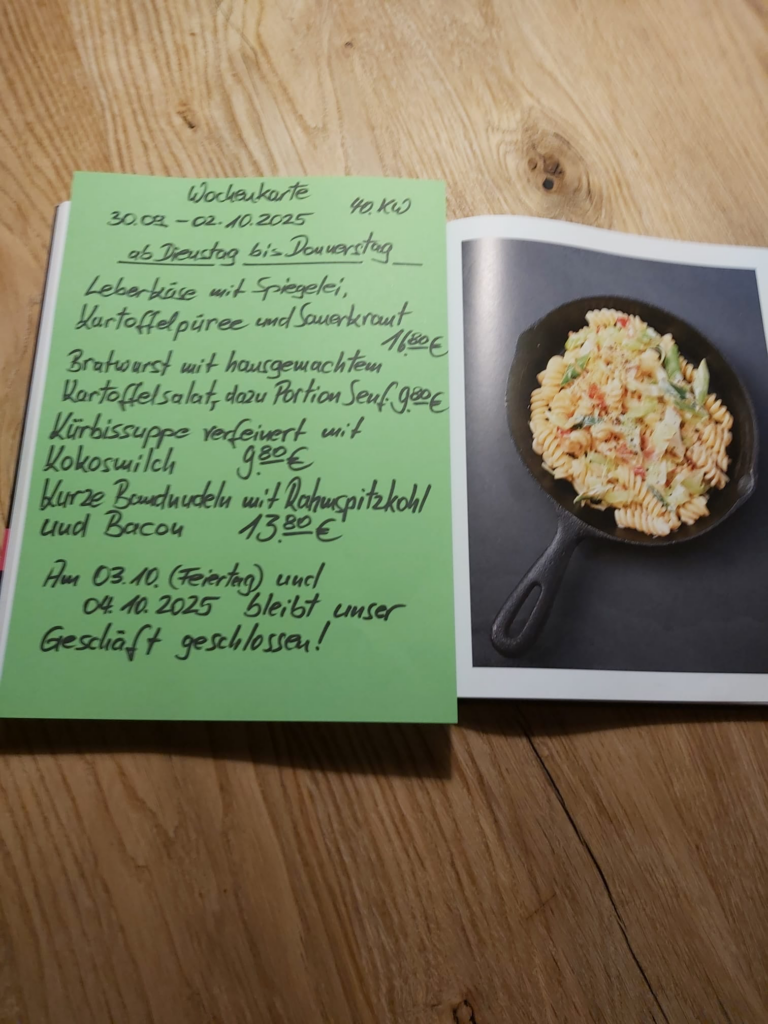 Wochenkarte
30.09. - 02.10.2025 40. KW
ab Dienstag bis Donnerstag
Leberkäse mit Spiegelei,
Kartoffelpüree und Sauerkraut
16.80 €
Bratwurst mit hausgemachtem
Kartoffelsalat, dazu Portion Senf. 9.80 €
Kürbissuppe verfeinert mit
Kokosmilch 9.80 €
Kurze Bandnudeln mit Rahmspitzkohl
und Bacon 13.80 €
Am 03.10. (Feiertag) und
04.10.2025 bleibt unser
Geschäft geschlossen!